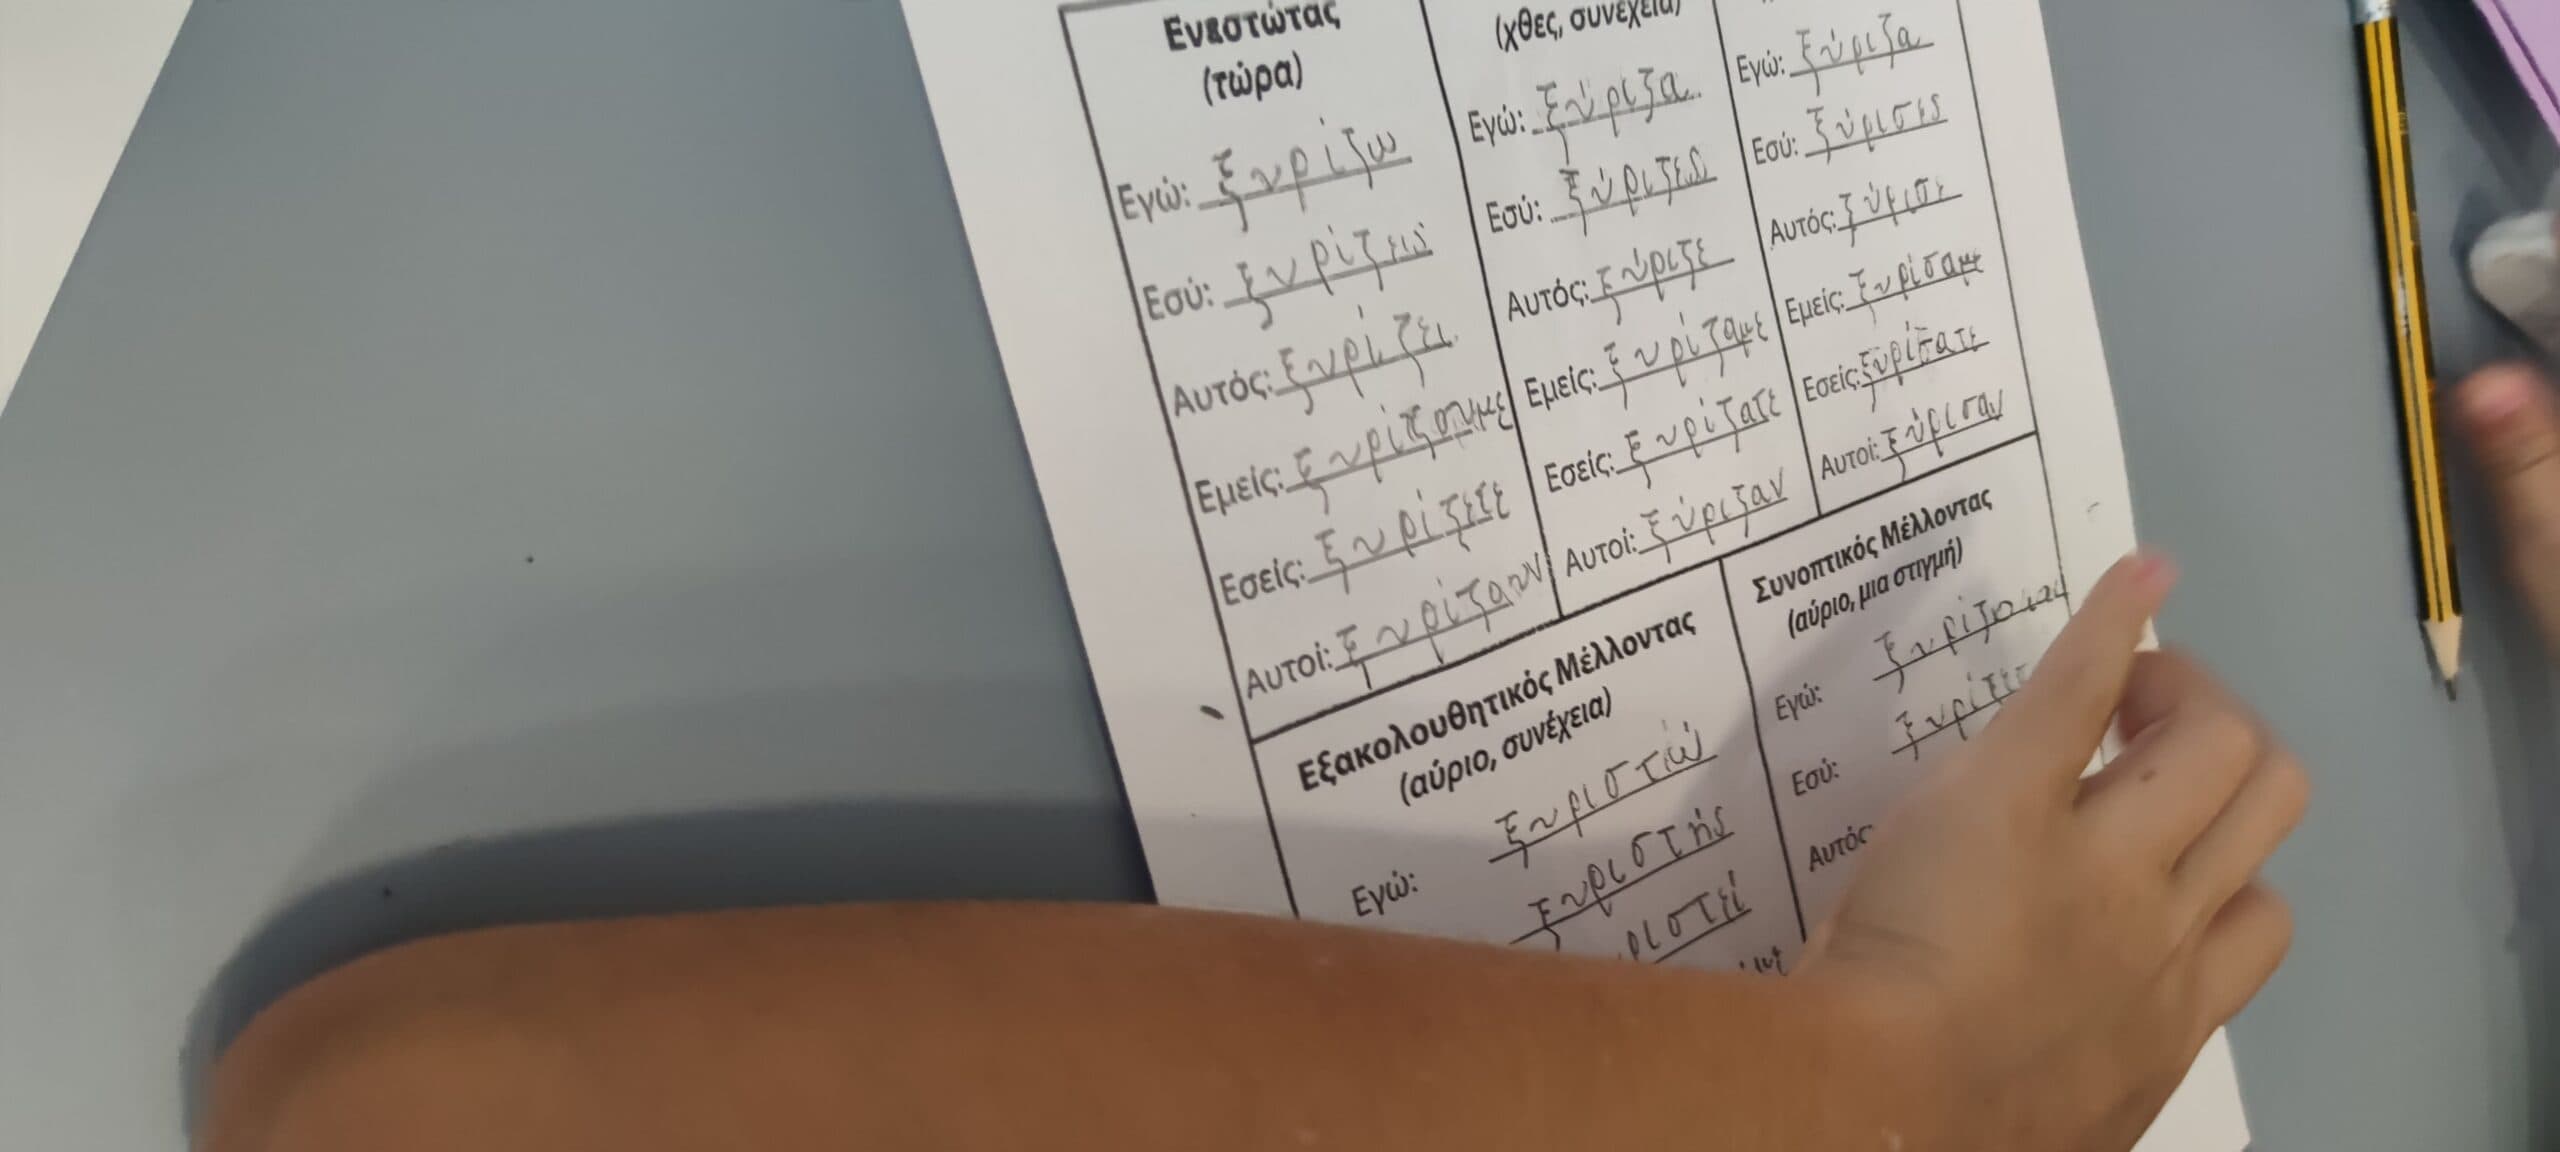 Ενεστώτας
(τώρα)
Εγώ: ξυρίζω
Εσύ: ξυρίζεις
Αυτός: ξυρίζει
Εμείς: ξυρίζουμε
Εσείς: ξυρίζετε
Αυτοί: ξυρίζουν
(χθες, συνέχεια)
Εγώ: ξύριζα
Εσύ: ξύριζες
Αυτός: ξύριζε
Εμείς: ξυρίζαμε
Εσείς: ξυρίζατε
Αυτοί: ξύριζαν
Εγώ: ξύριζα
Εσύ: ξύρισες
Αυτός: ξύρισε
Εμείς: ξυρίσαμε
Εσείς: ξυρίσατε
Αυτοί: ξύρισαν
Εξακολουθητικός Μέλλοντας
(αύριο, συνέχεια)
Εγώ: ξυριστώ
ξυριστής
ριστεί
Συνοπτικός Μέλλοντας
(αύριο, μια στιγμή)
Εγώ: ξυρίζομαι
Εσύ:
Αυτός